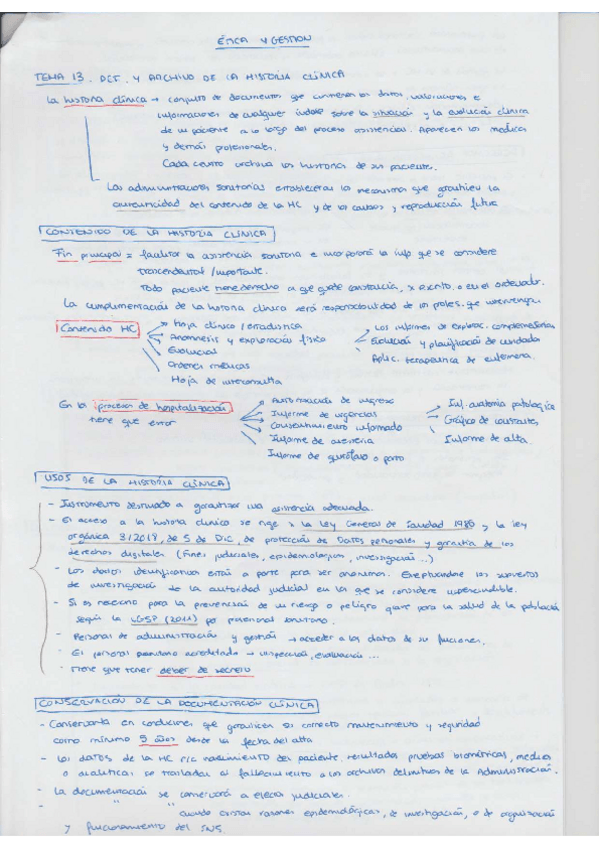 ÉTICA Y GESTION
TEMA 13. DCT. Y ARCHIVO DE LA HISTORIA CLÍNICA
La historia clínica → conjunto de documentos que contienen los datos, valoraciones e
informaciones de cualquier índole sobre la situación y la evolución clínica
de un paciente a lo largo del proceso asistencial. Aparecen los médicos
y demás profesionales.
Cada centro archiva las historias de sus pacientes.
Las administraciones sanitarias establecerán los mecanismos que garanticen la
autenticidad del contenido de la HC y de los cambios y reproducción futura
CONTENIDO DE LA HISTORIA CLÍNICA
Fin principal = facilitar la asistencia sanitaria e incorporará la info que se considere
trascendental / importante.
Todo paciente tiene derecho a que quede constancia, x escrito o en el ordenador.
La cumplimentación de la historia clínica será responsabilidad de los profes. que intervengan.
Contenido HC
Hoja clínico / estadística
Anamnesis y exploración física
Evolución
Ordenes médicas
Hoja de interconsulta
Los informes de explorac. complementarias
Evolución y planificación de cuidados
Aplic. terapeutica de enfermería.
En los procesos de hospitalización
tiene que estar
Autorización de ingreso
Informe de urgencias
Consentimiento informado
Informe de anestesia
Informe de quirófano o parto
Inf. anatomía patológica
Gráfico de constantes
Informe de alta.
USOS DE LA HISTORIA CLÍNICA
- Instrumento destinado a garantizar una asistencia adecuada.
- El acceso a la historia clínica se rige x la Ley General de Sanidad 1986 y la ley
orgánica 3/2018, de 5 de Dic, de protección de Datos personales y garantía de los
derechos digitales (Fines judiciales, epidemiológicos, investigación ...)
- Los datos identificativos están a parte para ser anónimos. Exceptuandose los supuestos
de investigación de la autoridad judicial en los que se considere imprescindible.
- Si es necesario para la prevención de un riesgo o peligro grave para la salud de la población
según la LGSP (2011) por personal sanitario.
- Personal de administración y gestión → acceder a los datos de sus funciones.
- El personal sanitario acreditado → inspección, evaluación ...
- Tiene que tener deber de secreto
CONSERVACIÓN DE LA DOCUMENTACIÓN CLÍNICA
- Conservarla en condiciones que garanticen su correcto mantenimiento y seguridad
como mínimo 5 años desde la fecha del alta
- Los datos de la HC r/c nacimiento del paciente, resultados pruebas biométricas, médicas
o analíticas se trasladan al fallecimiento a los archivos definitivos de la Administración.
- La documentación se conservará a efectos judiciales.
- " " cuando existan razones epidemiológicas, de investigación, o de organización
y funcionamiento del SNS.